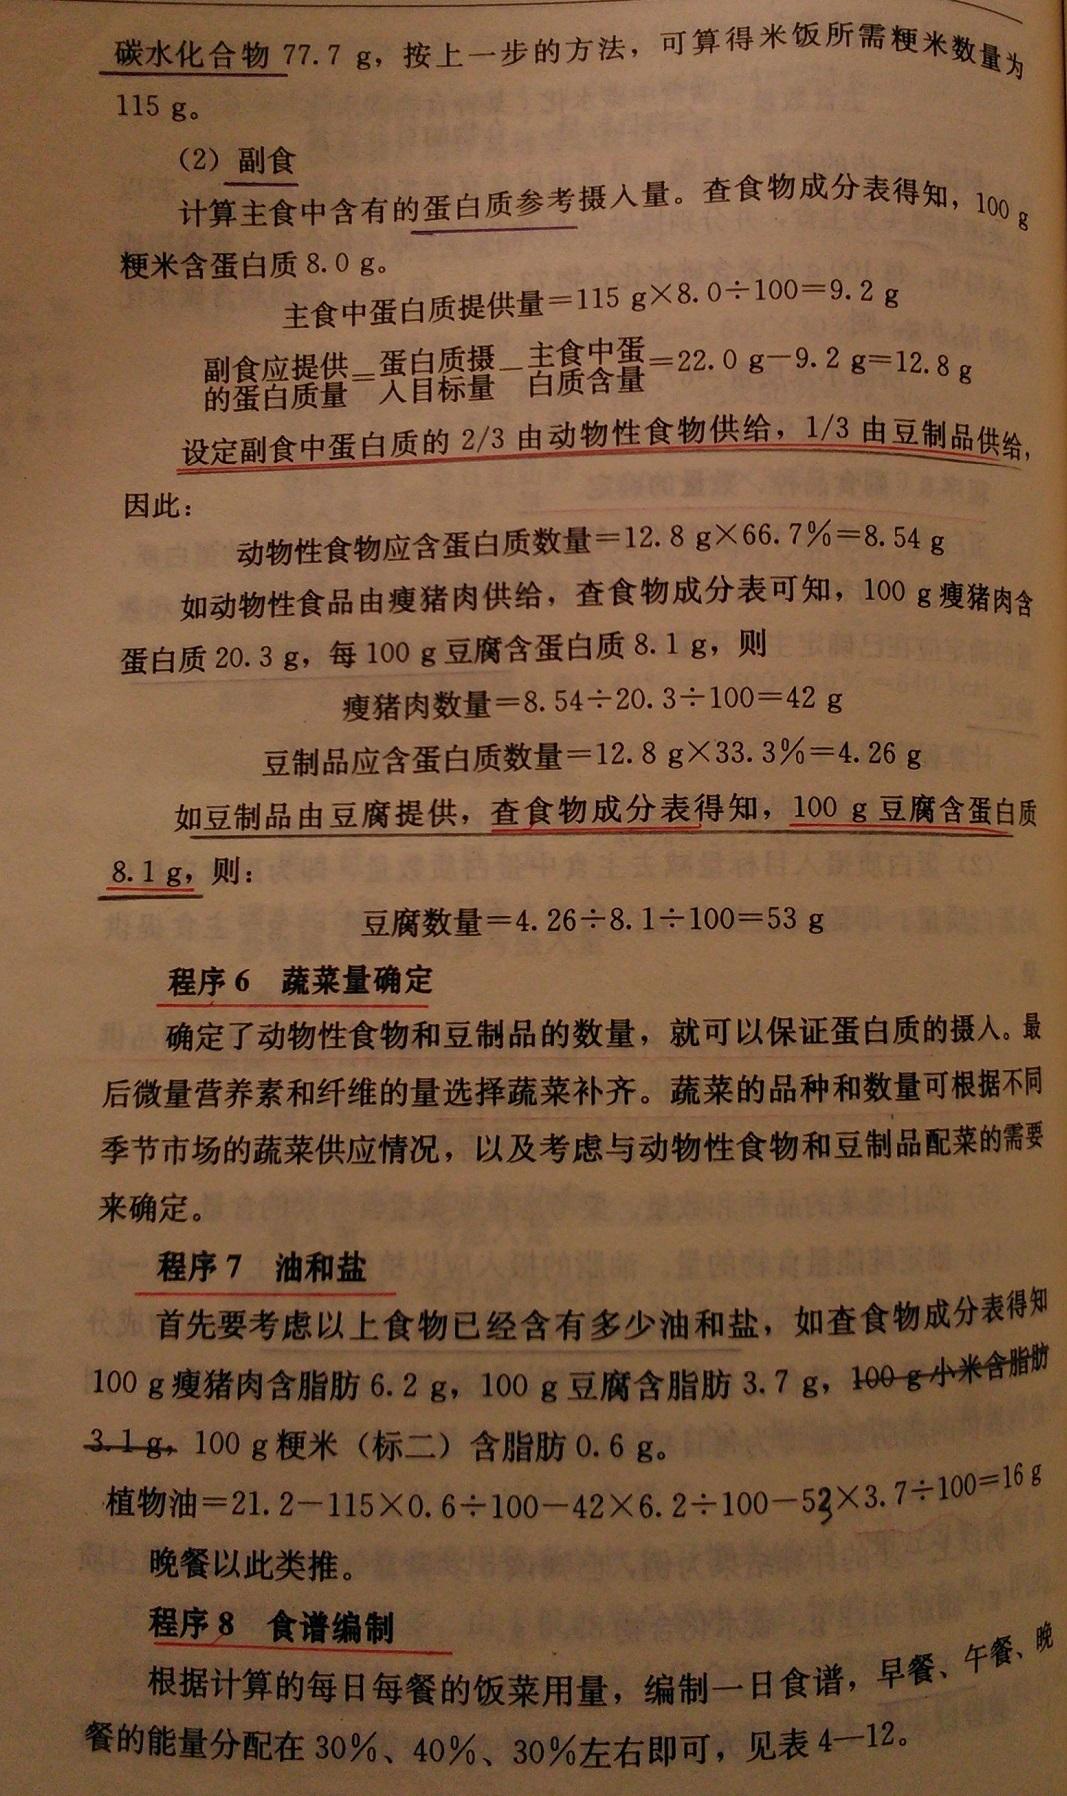 碳水化合物 77.7 g，按上一步的方法，可算得米饭所需粳米数量为
115 g。
（2）副食
计算主食中含有的蛋白质参考摄入量。查食物成分表得知，100 g
粳米含蛋白质 8.0 g。
主食中蛋白质提供量＝115 g×8.0÷100＝9.2 g
副食应提供的蛋白质量＝蛋白质摄入目标量－主食中蛋白质含量＝22.0 g－9.2 g＝12.8 g
设定副食中蛋白质的 2/3 由动物性食物供给，1/3 由豆制品供给，
因此：
动物性食物应含蛋白质数量＝12.8 g×66.7％＝8.54 g
如动物性食品由瘦猪肉供给，查食物成分表可知，100 g 瘦猪肉含
蛋白质 20.3 g，每 100 g 豆腐含蛋白质 8.1 g，则
瘦猪肉数量＝8.54÷20.3÷100＝42 g
豆制品应含蛋白质数量＝12.8 g×33.3％＝4.26 g
如豆制品由豆腐提供，查食物成分表得知，100 g 豆腐含蛋白质
8.1 g，则：
豆腐数量＝4.26÷8.1÷100＝53 g
程序 6　蔬菜量确定
确定了动物性食物和豆制品的数量，就可以保证蛋白质的摄入。最
后微量营养素和纤维的量选择蔬菜补齐。蔬菜的品种和数量可根据不同
季节市场的蔬菜供应情况，以及考虑与动物性食物和豆制品配菜的需要
来确定。
程序 7　油和盐
首先要考虑以上食物已经含有多少油和盐，如查食物成分表得知
100 g 瘦猪肉含脂肪 6.2 g，100 g 豆腐含脂肪 3.7 g，100 g 小米含脂肪
3.1 g，100 g 粳米（标二）含脂肪 0.6 g。
植物油＝21.2－115×0.6÷100－42×6.2÷100－53×3.7÷100＝16 g
晚餐以此类推。
程序 8　食谱编制
根据计算的每日每餐的饭菜用量，编制一日食谱，早餐、午餐、晚
餐的能量分配在 30％、40％、30％左右即可，见表 4—12。